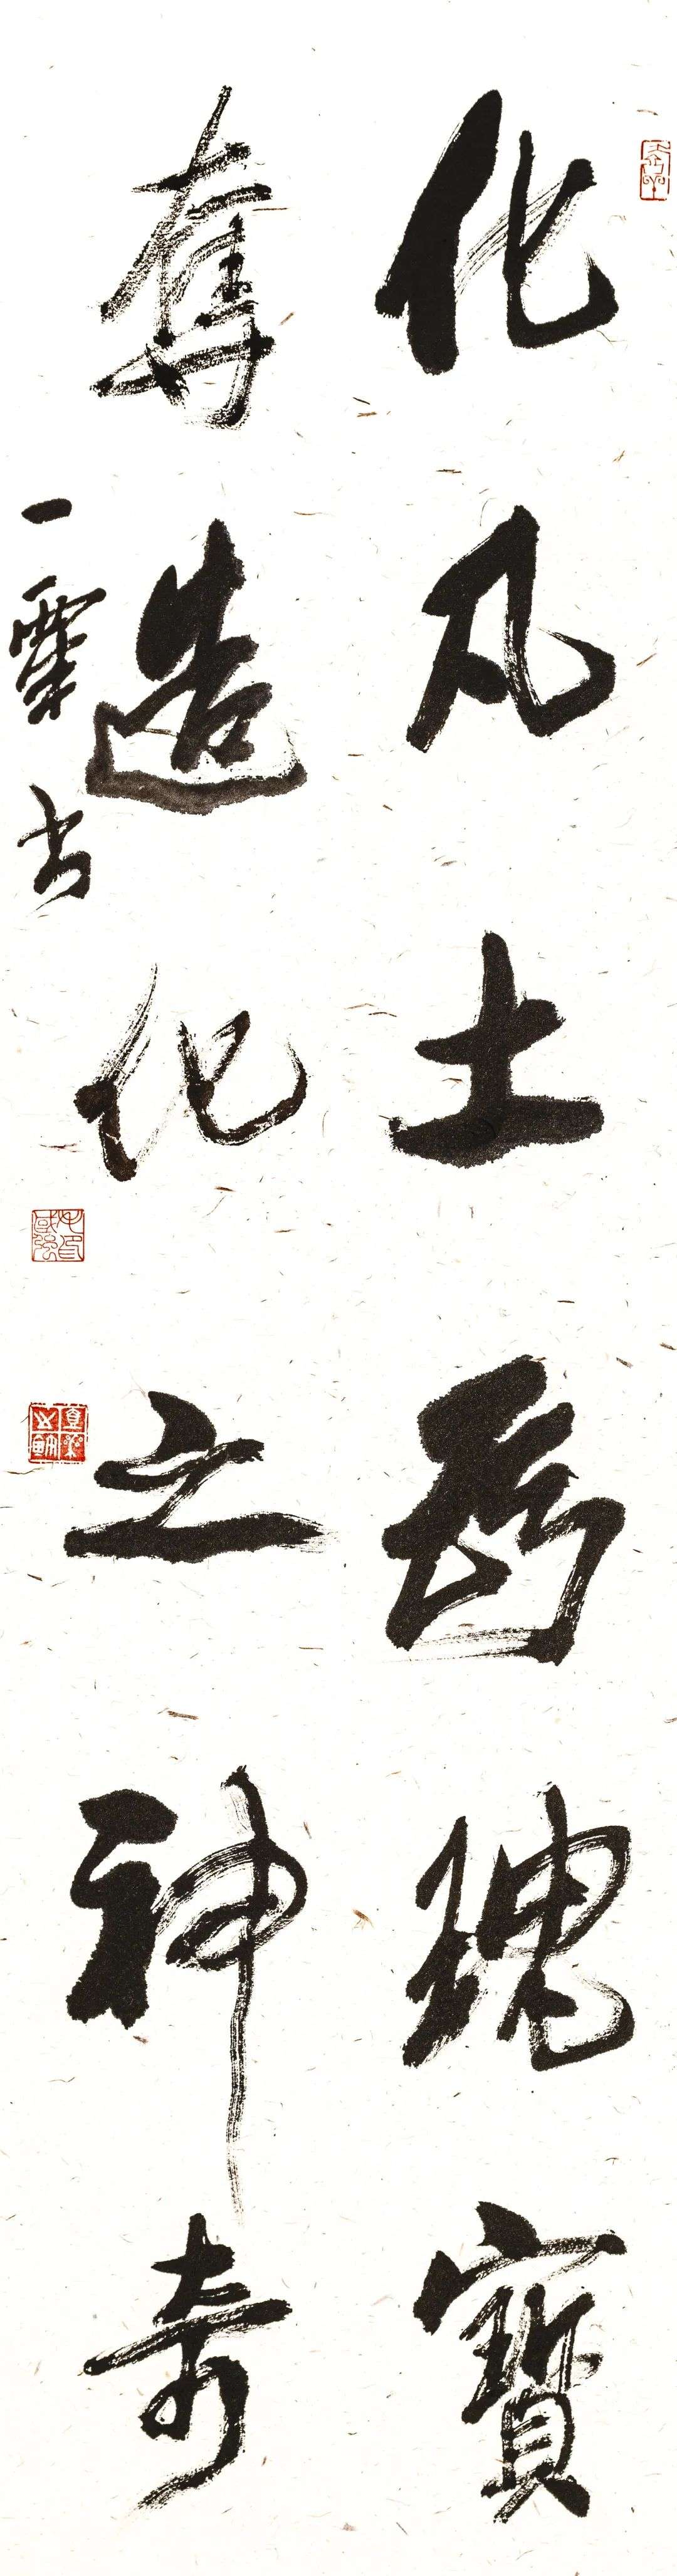 化凡土為瑰寶
奪造化之神奇
一粟書